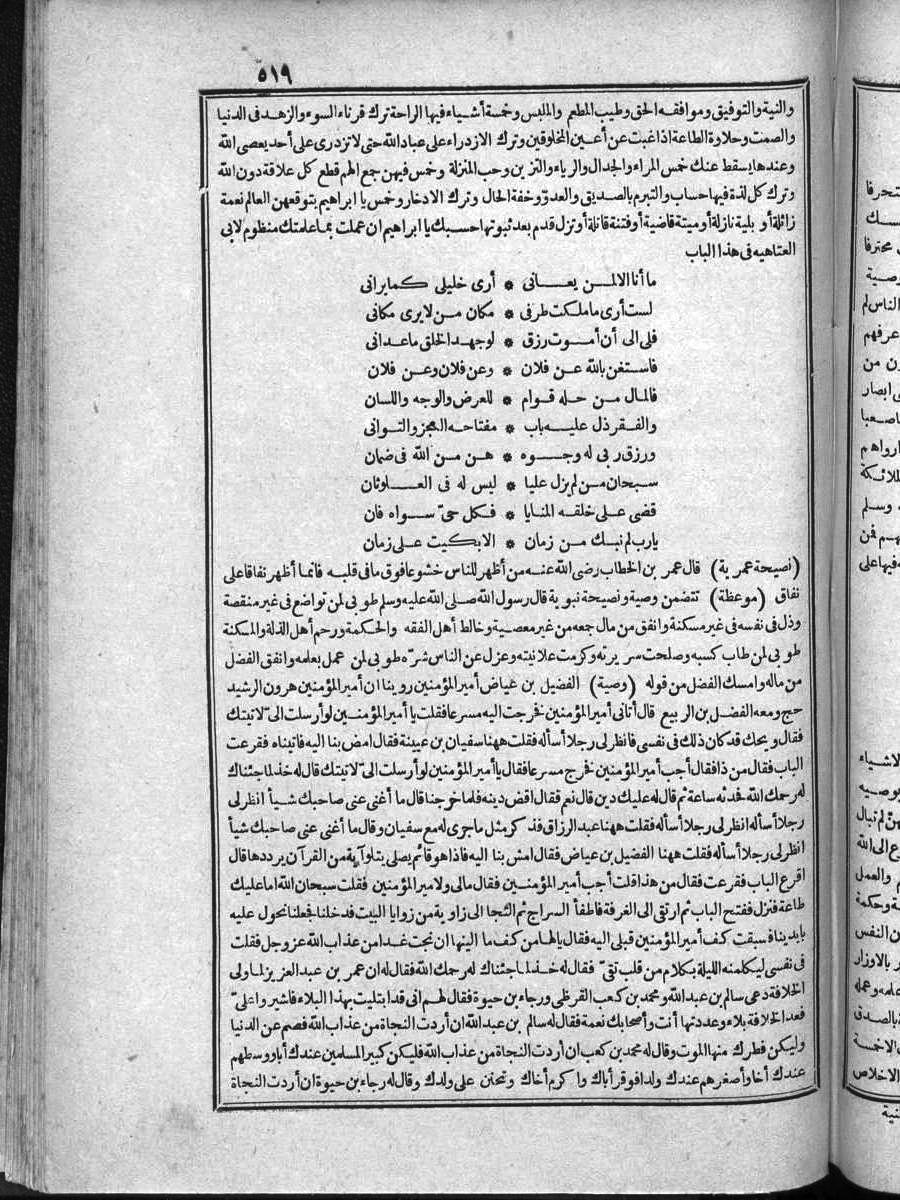 ٥١٩
والنية والتوفيق وموافقه الحق وطيب المطعم والملبس وخمسة أشياء فيها الراحة ترك قرناء السوء والزهد فى الدنيا
والصمت وحلاوة الطاعة اذا غبت عن أعين المخلوقين وترك الازدراء على عباد الله حتى لا تزدرى على أحد يعصى الله
وعندها يسقط عنك خمس المراء والجدال والرياء والتزين وحب المنزلة وخمس فيهن جمع الهم قطع كل علاقة دون الله
وترك كل لذة فيها حساب والتبرم بالصديق والعدو وخفة الحال وترك الادخار وخمس يا ابراهيم يتوقعهن العالم نعمة
زائلة أو بلية نازلة أو ميتة قاضية أو فتنة قاتلة أو تزل قدم بعد ثبوتها حسبك يا ابراهيم ان عملت بما علمتك منظوم لابى
العتاهيه فى هذا الباب
ما أنا الا لمن يعانى * أرى خليلى كما يرانى
لست أرى ما ملكت طرفى * مكان من لا يرى مكانى
فلى الى أن أموت رزق * لو جهد الخلق ما عدانى
فاستغن بالله عن فلان * وعن فلان وعن فلان
فالمال من حله قوام * للعرض والوجه واللسان
والفقر ذل عليه باب * مفتاحه العجز والتوانى
ورزق ربى له وجوه * هن من الله فى ضمان
سبحان من لم يزل عليا * ليس له فى العلو ثان
قضى على خلقه المنايا * فكل حىّ سواه فان
يارب لم نبك من زمان * الا بكيت على زمان
(نصيحة عمرية) قال عمر بن الخطاب رضى الله عنه من أظهر للناس خشوعا فوق ما فى قلبه فانما أظهر نفاقا على
نفاق (موعظة) تتضمن وصية ونصيحة نبوية قال رسول الله صلى الله عليه وسلم طوبى لمن تواضع فى غير منقصة
وذل فى نفسه فى غير مسكنة وانفق من مال جمعه من غير معصية وخالط أهل الفقه والحكمة ورحم أهل الذلة والمسكنة
طوبى لمن طاب كسبه وصلحت سريرته وكرمت علانيته وعزل عن الناس شرّه طوبى لمن عمل بعلمه وانفق الفضل
من ماله وامسك الفضل من قوله (وصية) الفضيل بن عياض أمير المؤمنين روينا ان أمير المؤمنين هرون الرشيد
حج ومعه الفضل بن الربيع قال أتانى أمير المؤمنين فخرجت اليه مسرعا فقلت يا أمير المؤمنين لو أرسلت الىّ لاتيتك
فقال ويحك قد كان ذلك فى نفسى فانظر لى رجلا أسأله فقلت ههنا سفيان بن عيينة فقال امض بنا اليه فاتيناه فقرعت
الباب فقال من ذا فقال أجب أمير المؤمنين فخرج مسرعا فقال يا أمير المؤمنين لو أرسلت الىّ لاتيتك قال له خذ لما جئناك
له رحمك الله فحدثه ساعة ثم قال له عليك دين قال نعم فقال اقض دينه فلما خرجنا قال ما أغنى عنى صاحبك شيأ انظر لى
رجلا أسأله انظر لى رجلا أسأله فقلت ههنا عبد الرزاق فذكر مثل ما جرى له مع سفيان وقال ما أغنى عنى صاحبك شيأ
انظر لى رجلا أسأله فقلت ههنا الفضيل بن عياض فقال امش بنا اليه فاذا هو قائم يصلى يتلو آية من القرآن يرددها قال
اقرع الباب فقرعت فقال من هذا قلت أجب أمير المؤمنين فقال مالى ولامير المؤمنين فقلت سبحان الله اما عليك
طاعة فنزل ففتح الباب ثم ارتقى الى الغرفة فاطفأ السراج ثم التجا الى زاوية من زوايا البيت فدخلنا فجعلنا نجول عليه
بايدينا فسبقت كف أمير المؤمنين قبلى اليه فقال يا لها من كف ما الينها ان نجت غدا من عذاب الله عز وجل فقلت
فى نفسى ليكلمنه الليلة بكلام من قلب تقىّ فقال له خذ لما جئناك له رحمك الله فقال له ان عمر بن عبد العزيز لما ولى
الخلافة دعى سالم بن عبد الله ومحمد بن كعب القرظى ورجاء بن حيوة فقال لهم انى قد ابتليت بهذا البلاء فاشيروا علىّ
فعد الخلافة بلاء وعددتها أنت وأصحابك نعمة فقال له سالم بن عبد الله ان أردت النجاة من عذاب الله فصم عن الدنيا
وليكن فطرك منها الموت وقال له محمد بن كعب ان أردت النجاة من عذاب الله فليكن كبير المسلمين عندك أبا ووسطهم
عندك أخا وأصغرهم عندك ولدا فوقر أباك واكرم أخاك وتحنن على ولدك وقال له رجاء بن حيوة ان أردت النجاة